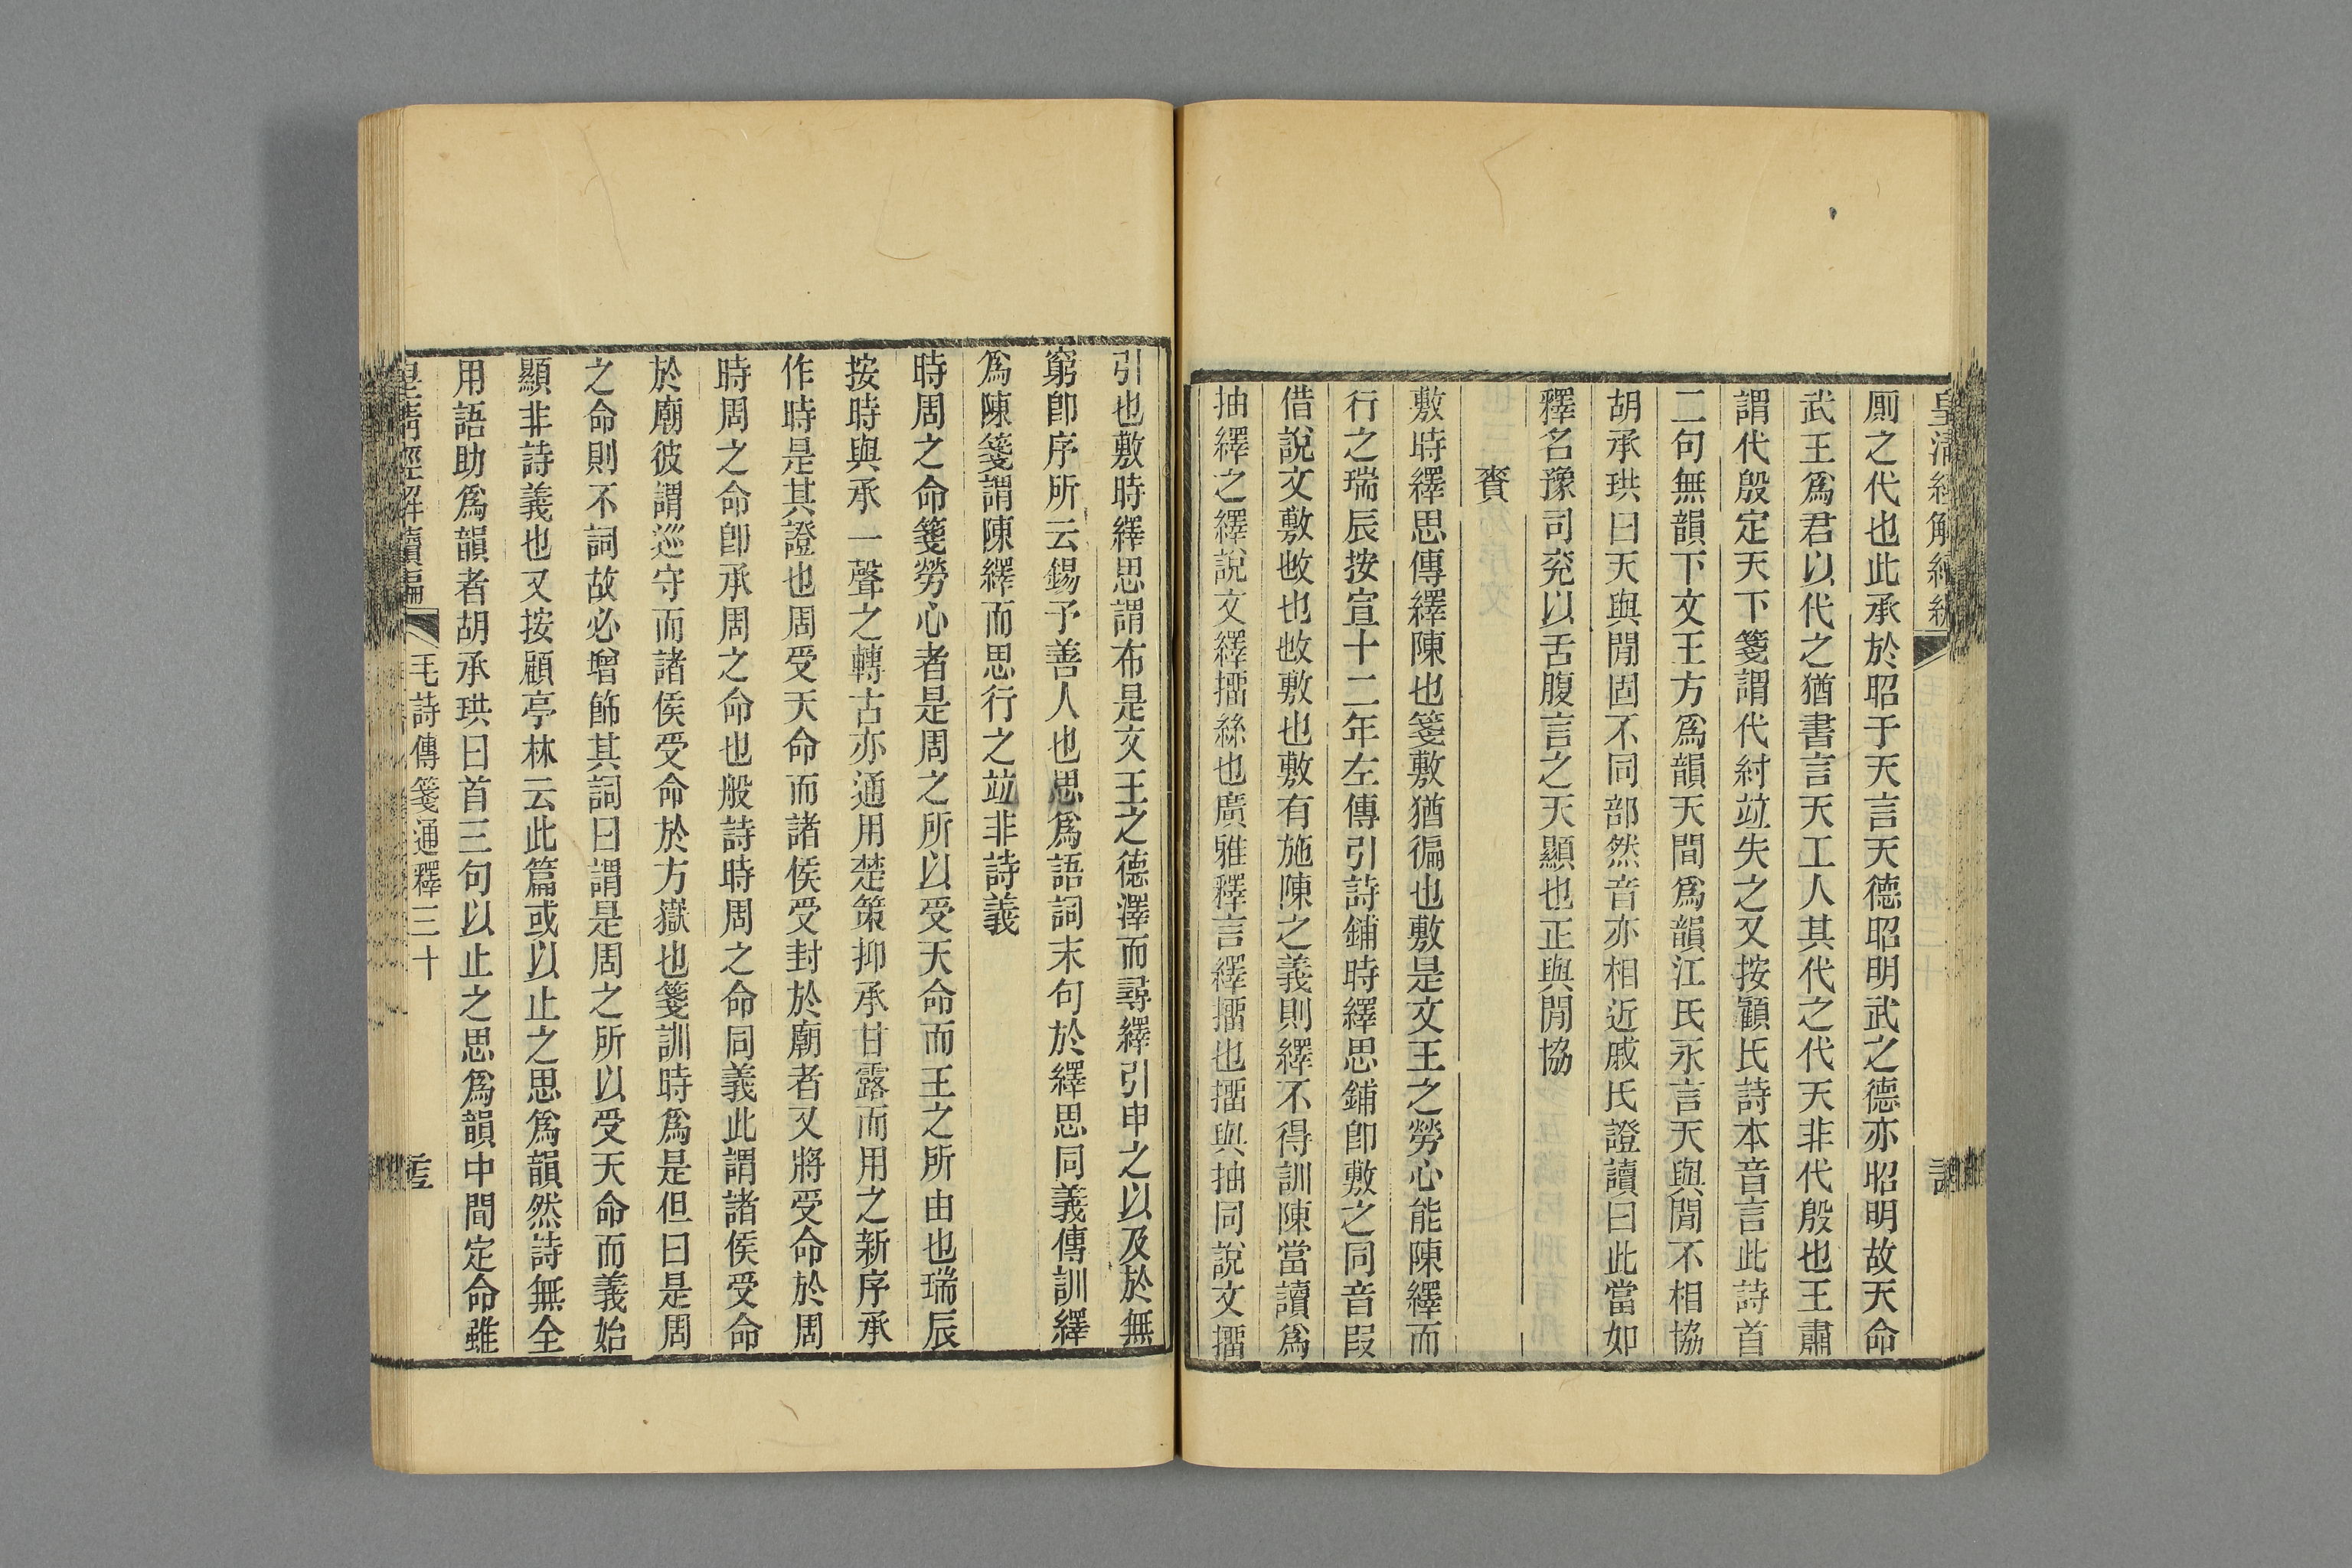 皇清經解續編
廁之代也此承於昭于天言天德昭明武之德亦昭明故天命
武王爲君以代之猶書言天工人其代之代天非代殷也王肅
謂代殷定天下箋謂代紂竝失之又按顧氏詩本音言此詩首
二句無韻下文王方爲韻天間爲韻江氏永言天與閒不相協
胡承珙曰天與閒固不同部然音亦相近戚氏證讀曰此當如
釋名豫司兖以舌腹言之天顯也正與閒協
賚
敷時繹思傳繹陳也箋敷猶徧也敷是文王之勞心能陳繹而
行之瑞辰按宣十二年左傳引詩鋪時繹思鋪卽敷之同音叚
借說文敷㪺也㪺敷也敷有施陳之義則繹不得訓陳當讀爲
抽繹之繹說文繹擂絲也廣雅釋言繹擂也擂與抽同說文擂
引也敷時繹思謂布是文王之德澤而尋繹引申之以及於無
窮卽序所云錫予善人也思爲語詞末句於繹思同義傳訓繹
爲陳箋謂陳繹而思行之竝非詩義
時周之命箋勞心者是周之所以受天命而王之所由也瑞辰
按時與承一聲之轉古亦通用楚策抑承甘露而用之新序承
作時是其證也周受天命而諸侯受封於廟者又將受命於周
時周之命卽承周之命也般詩時周之命同義此謂諸侯受命
於廟彼謂巡守而諸侯受命於方嶽也箋訓時爲是但曰是周
之命則不詞故必增飾其詞曰謂是周之所以受天命而義始
顯非詩義也又按顧亭林云此篇或以止之思爲韻然詩無全
用語助爲韻者胡承珙曰首三句以止之思爲韻中間定命雖
皇淸經解續編 毛詩傳箋通釋三十